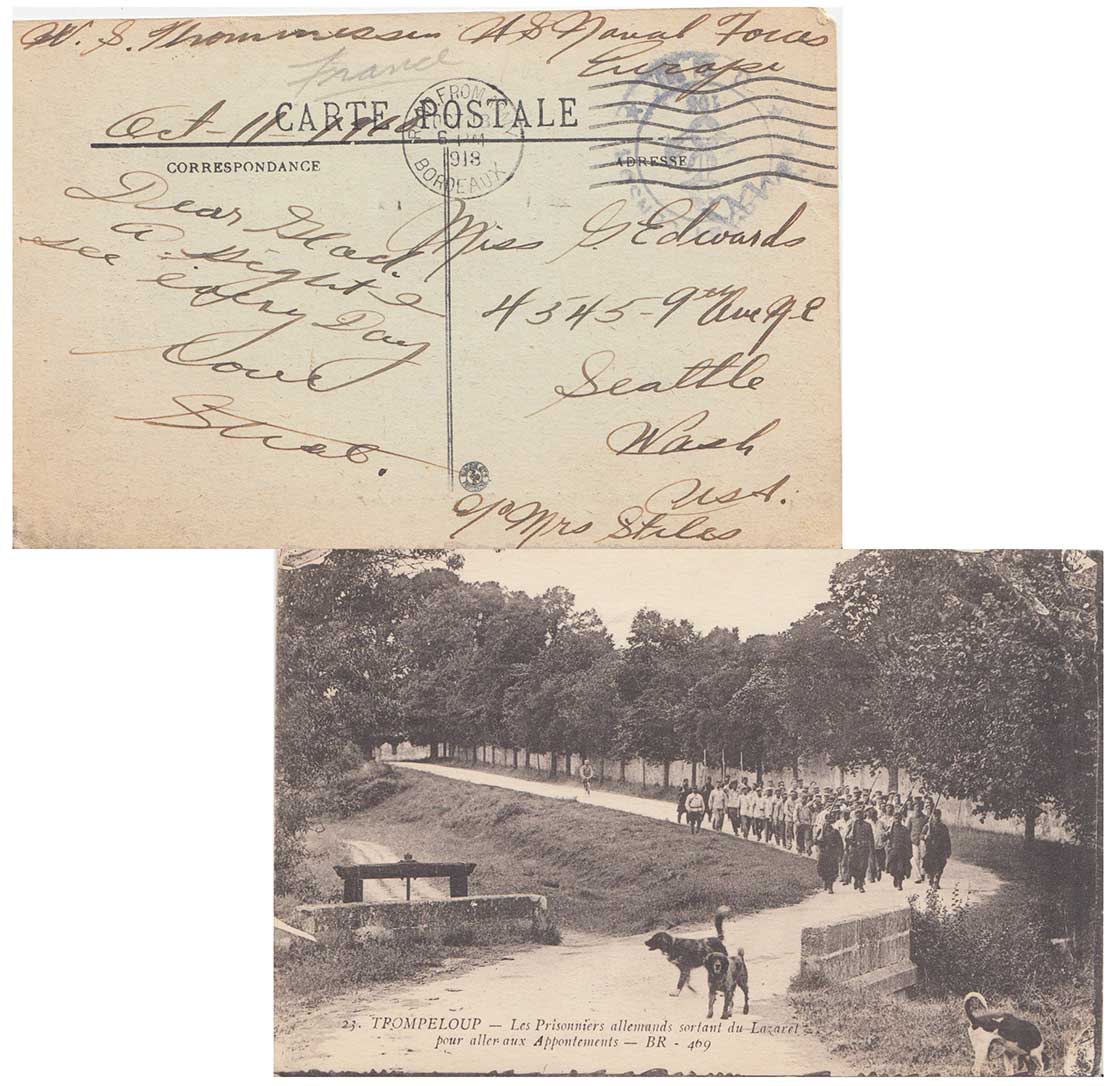 W. S. Thommessen US Naval Forces
Europe
France
CARTE POSTALE
Oct-11-1918
FROM
6 PM
1918
BORDEAUX
CORRESPONDANCE
ADRESSE
Dear Glad.
A Sight I
see every Day
Love
Strat.
Miss G Edwards
4345-9th Ave N.E
Seattle
Wash
USA.
c/o Mrs Stiles
23. TROMPELOUP — Les Prisonniers allemands sortant du Lazaret
pour aller aux Appontements — BR - 469